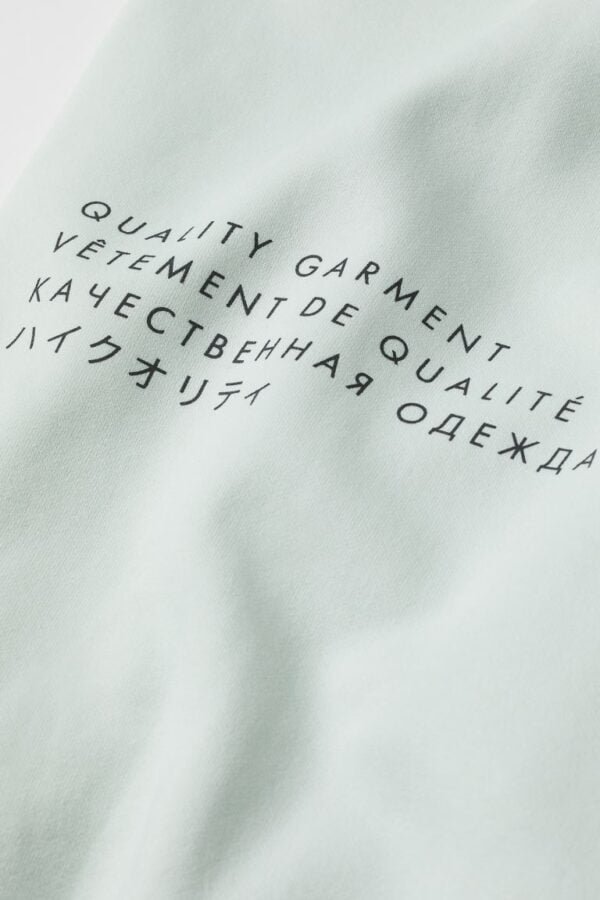 QUALITY GARMENT
VÊTEMENT DE QUALITÉ
КАЧЕСТВЕННАЯ ОДЕЖДА
ハイクオリティ